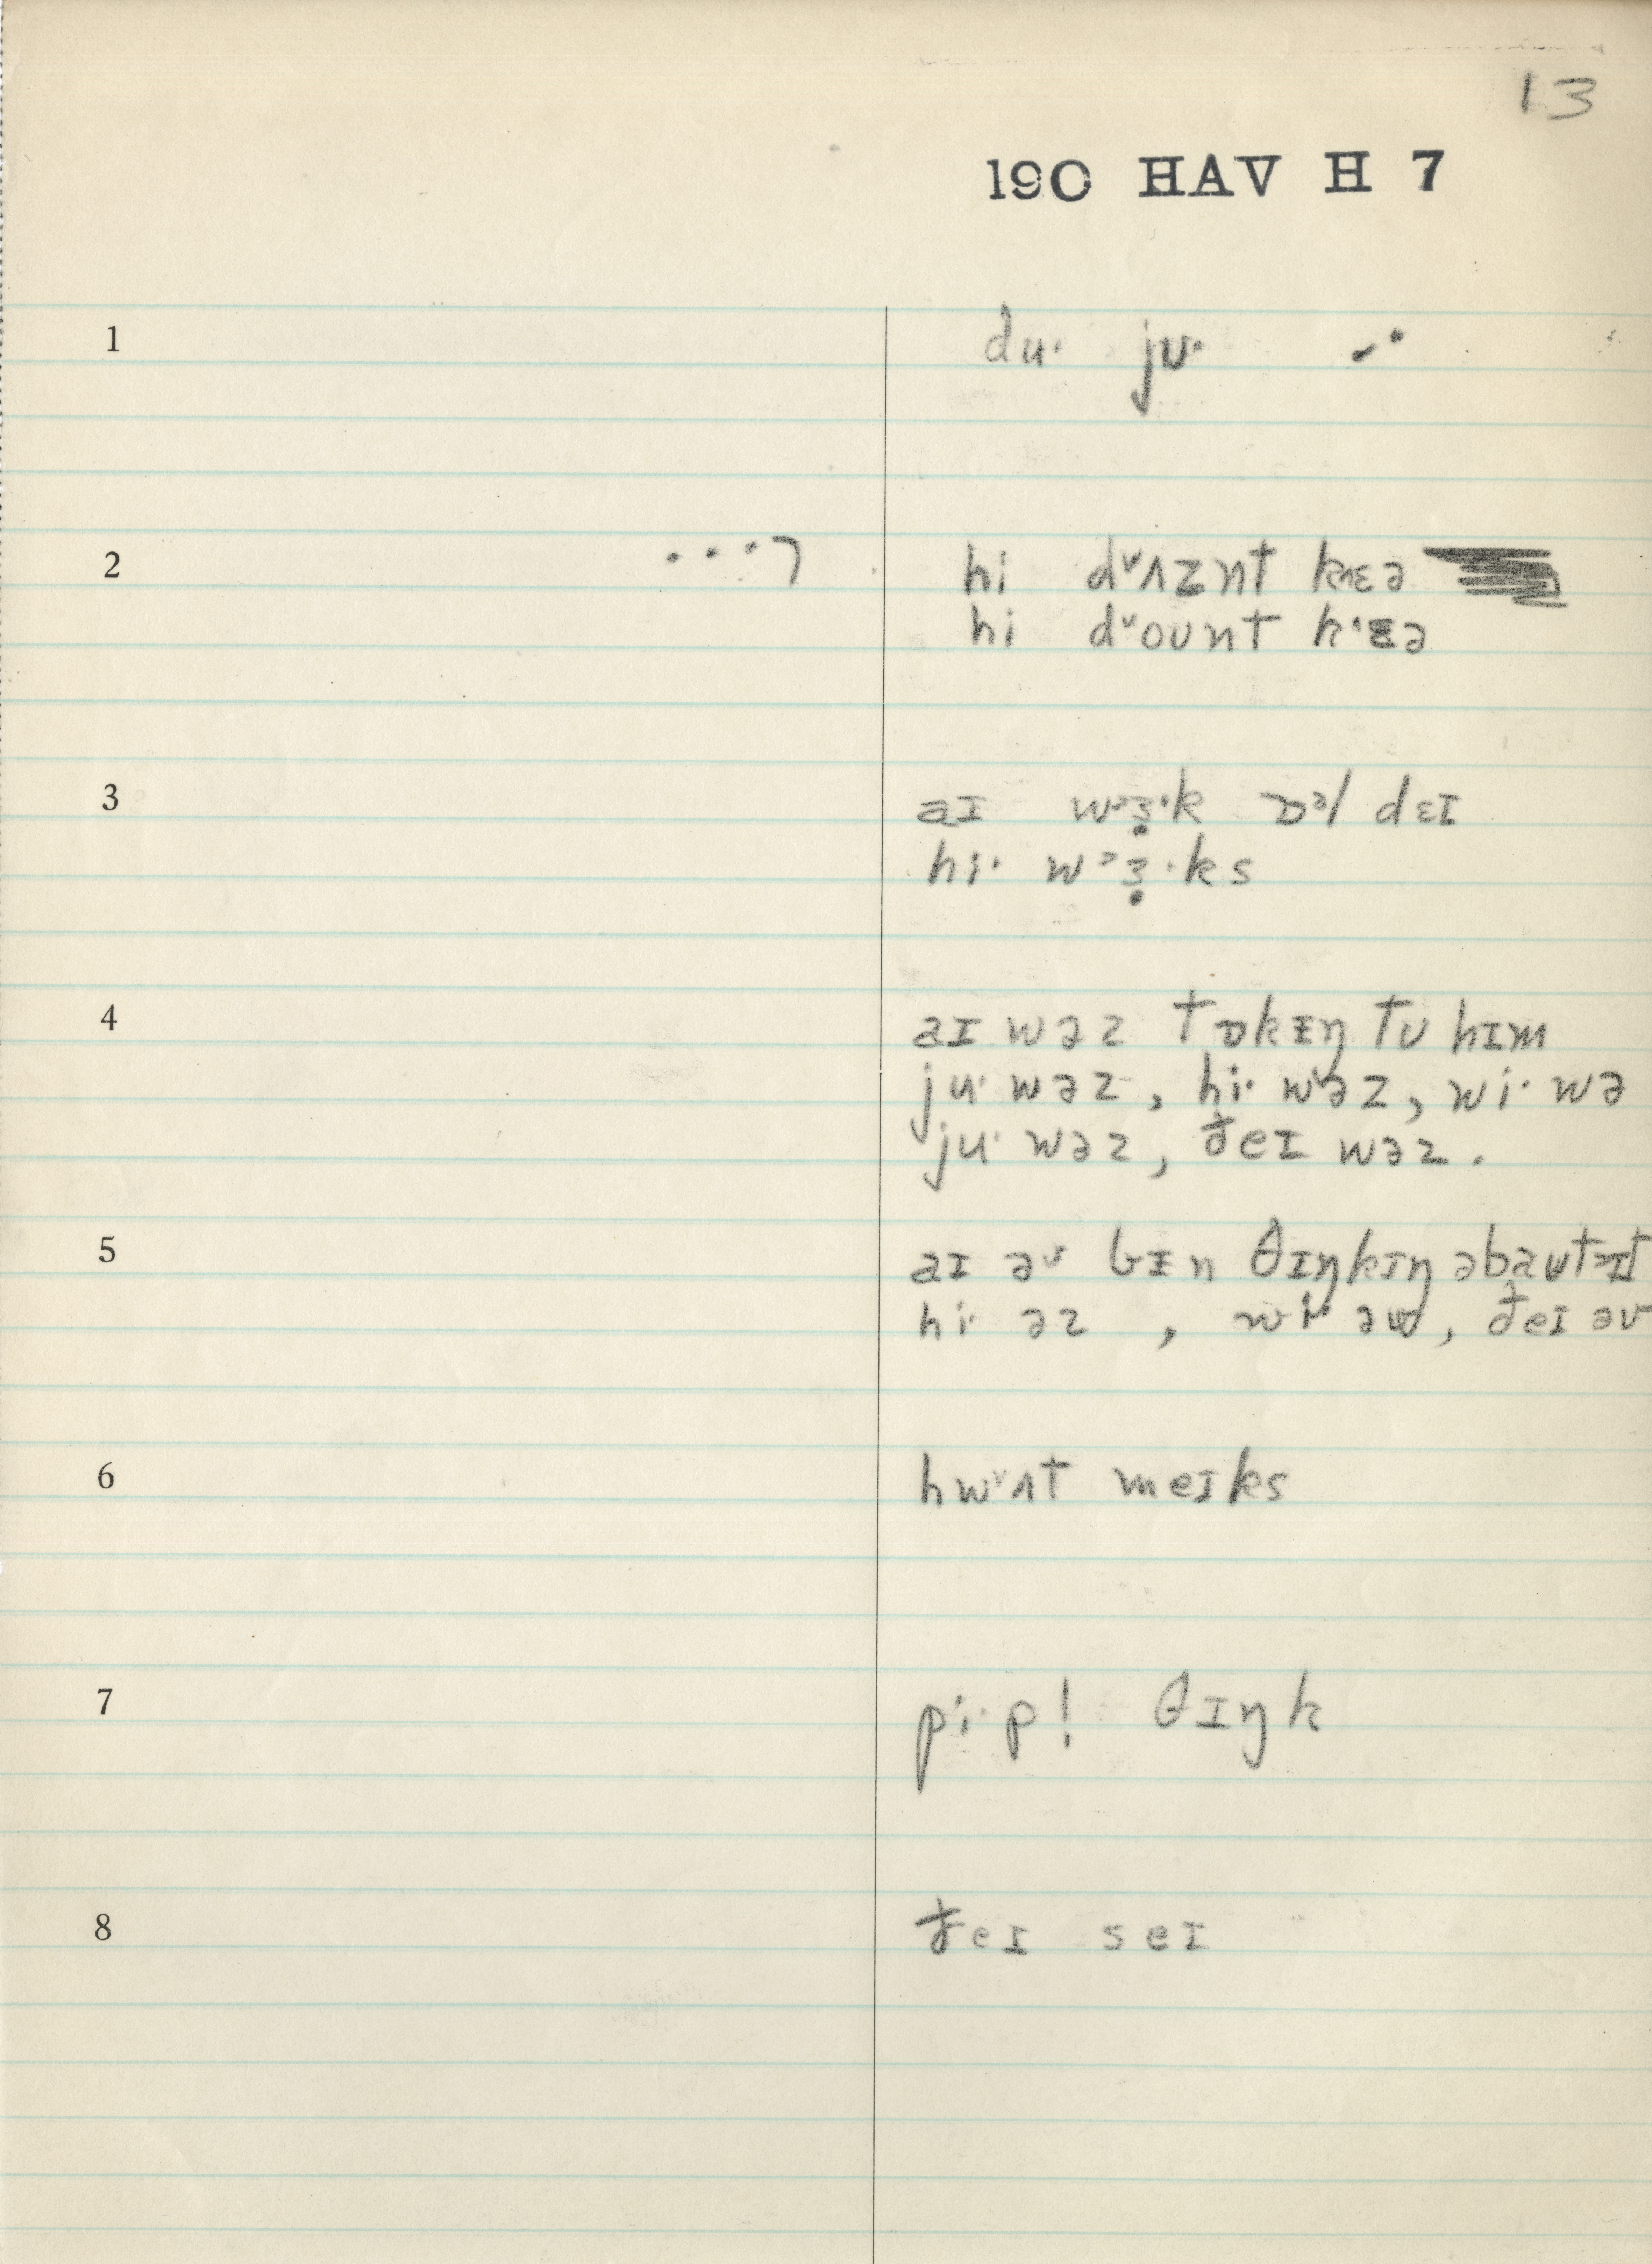 13
190 HAV H 7
1 du· ju·
2 hi dᵛʌznt kʰɛə
hi dᵛount kʰɛə
3 aɪ wᵊɜ̣·k ɒᵊl dɛɪ
hi· wᵊɜ̣·ks
4 aɪ wəz tɒkɪŋ tu hɪm
ju· wəz, hi· wəz, wi· wə
ju· wəz, ðeɪ wəz.
5 aɪ əv bɪn θɪŋkɪŋ əbaut ɪt
hi· əz , wi· əv, ðeɪ əv
6 hwᵛʌt meɪks
7 pi·p! θɪŋk
8 ðeɪ seɪ